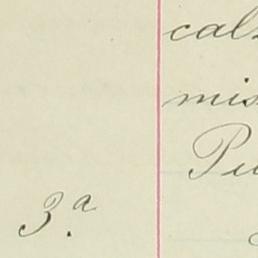 cals
mis
Pu
3.ª